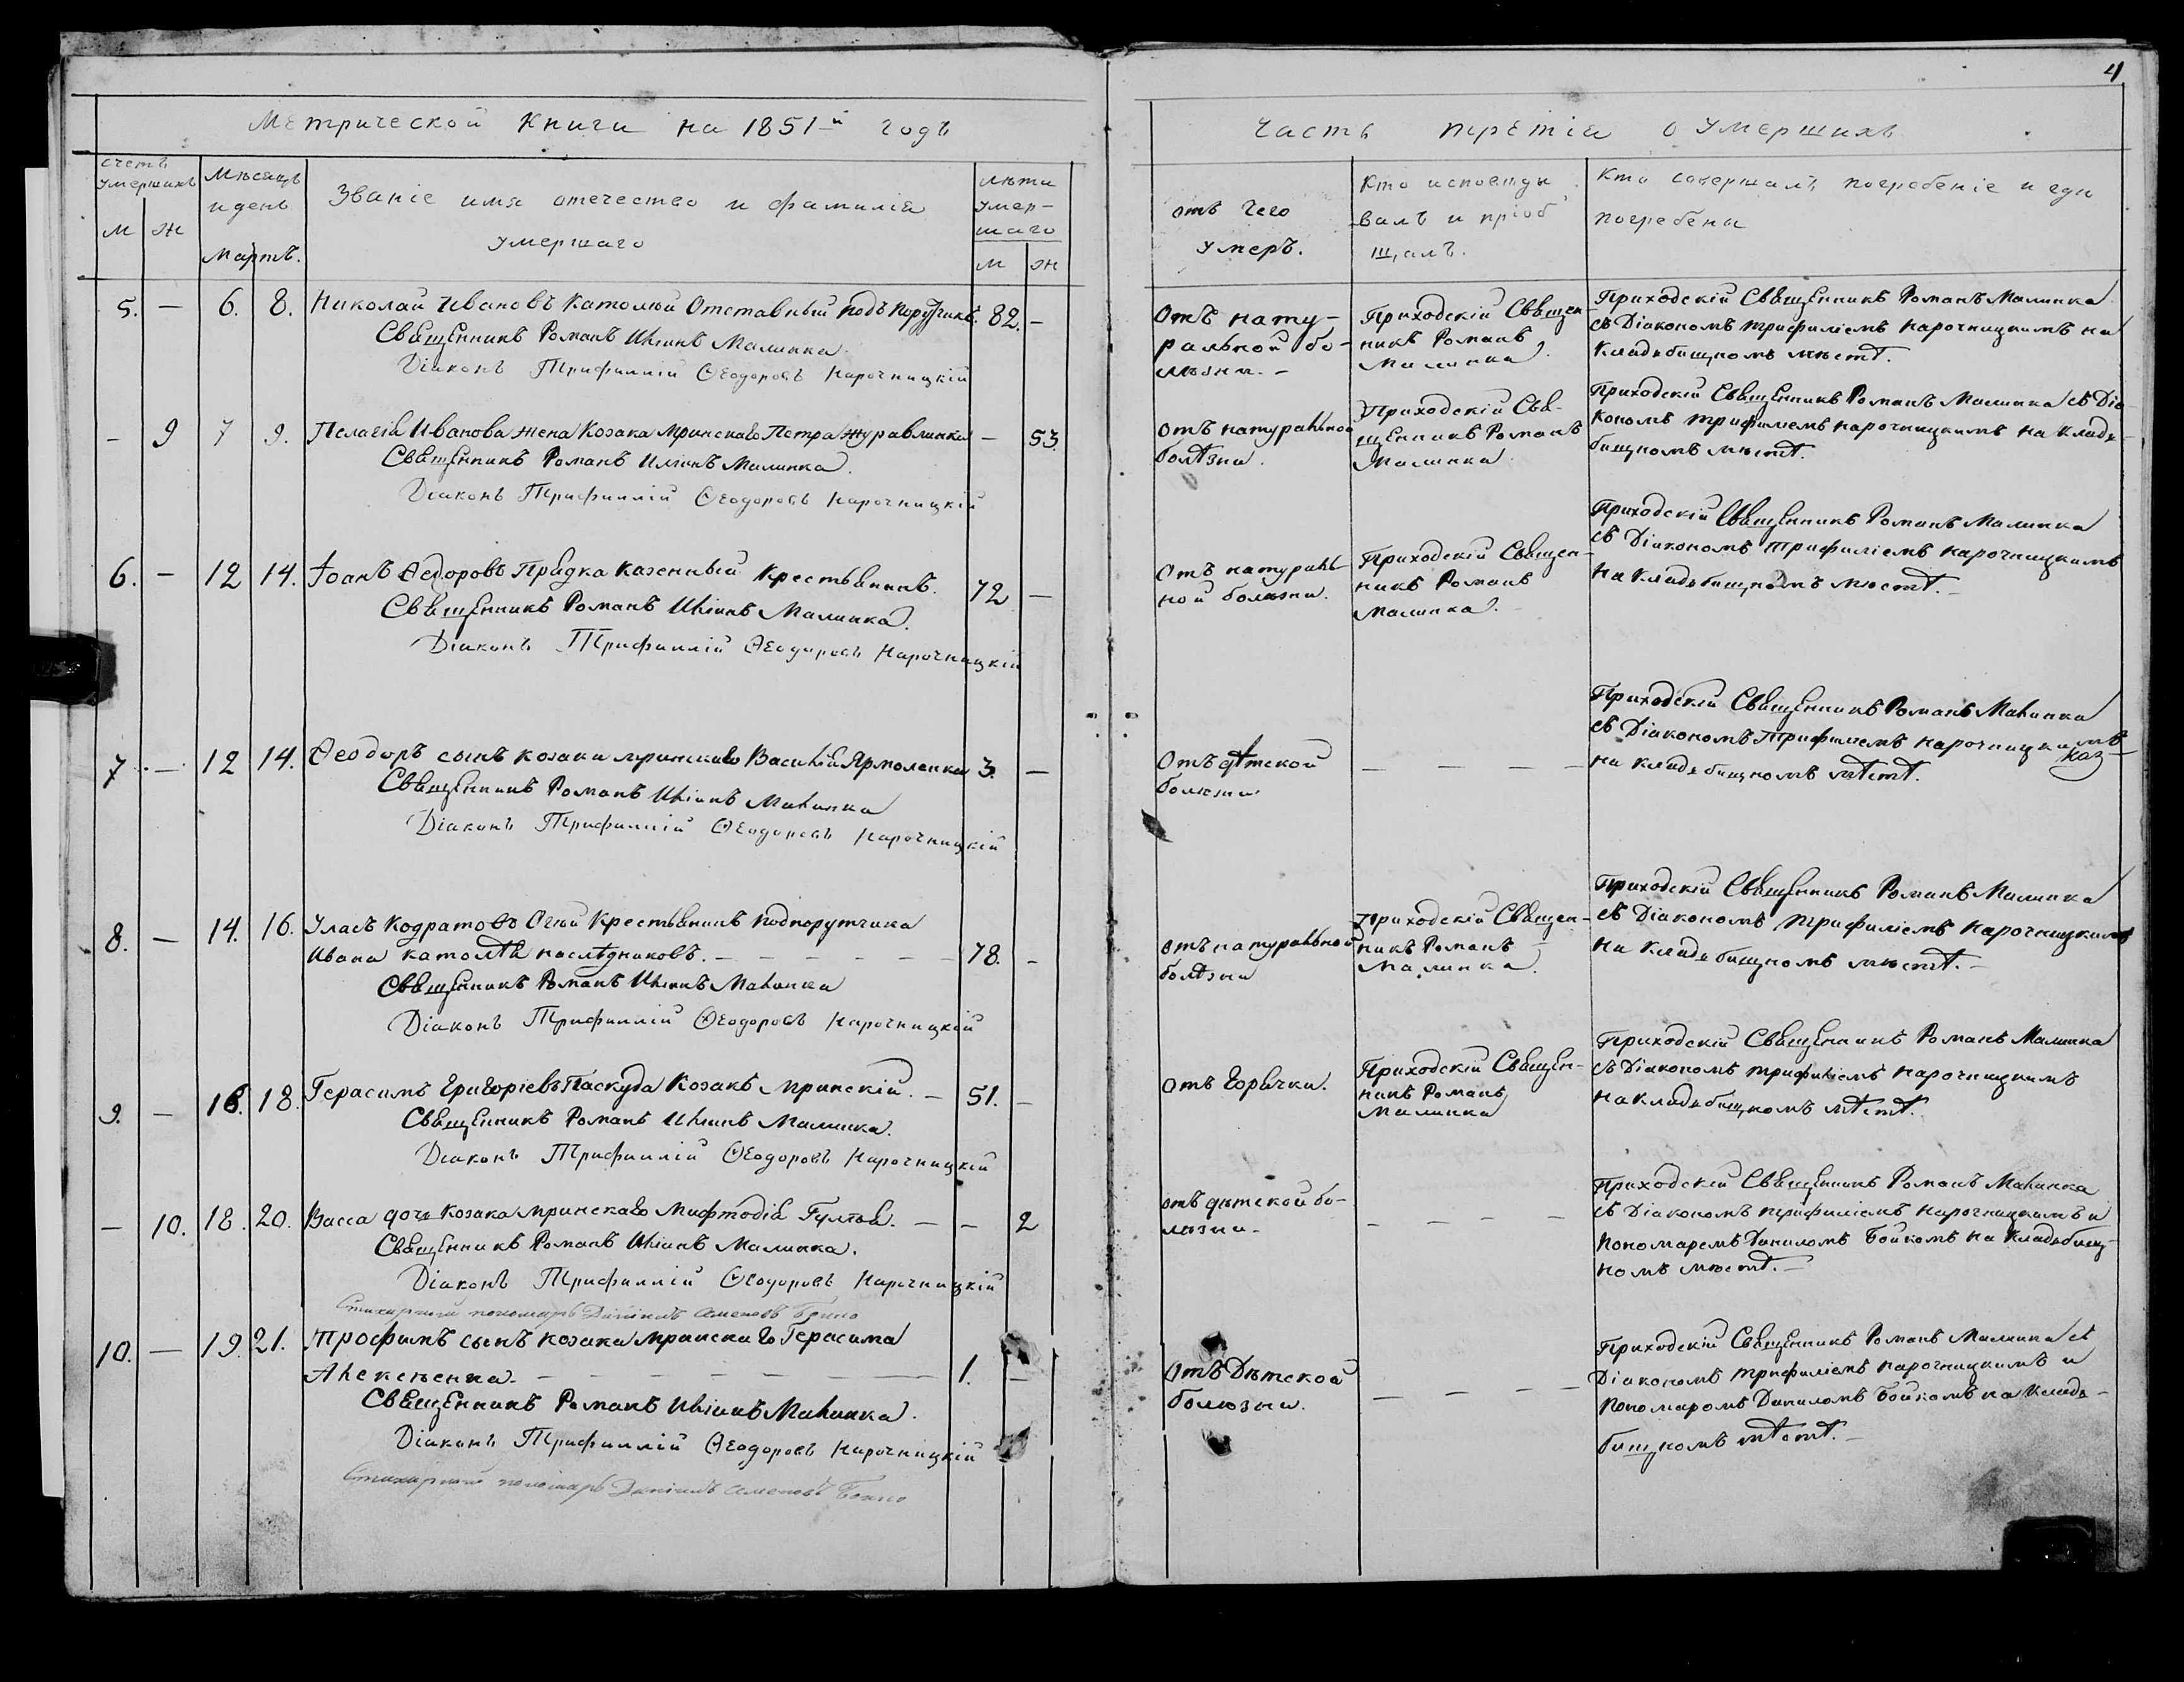 4
Метрической Книги на 1851-й годъ
Часть третіа о умершихъ
счетъ умершихъ
М Ж
Мѣсяцъ и день
Мартъ.
Званіе имя отечество и фамиліа
умершаго
лѣта умер-
шаго
М Ж
отъ чего
умеръ.
Кто исповѣды
валъ и пріоб
щалъ.
Кто совершалъ погребеніе и гдѣ
погребены
5. — 6. 8. Николай Ивановъ Католѣй Отставный подъ Поручикъ. 82. —
Священникъ Романъ Иліинъ Малинка.
Діаконъ Трифиллій Ѳеодоровъ Нарочницкій
Отъ нату-
ральной бо-
лѣзни. —
Приходскій Священ-
никъ Романъ
Малинка.
Приходскій Священникъ Романъ Малинка
съ Діакономъ Трифиліемъ Нарочницкимъ на
Кладбищномъ мѣстѣ.
— 9 7 9. Пелагіа Иванова жена Козака Мринскаго Петра Журавлинка — 53.
Священникъ Романъ Иліинъ Малинка.
Діаконъ Трифиллій Ѳеодоровъ Нарочницкій
Отъ натуральной
болѣзни.
Приходскій Свя-
щенникъ Романъ
Малинка
Приходскій Священникъ Романъ Малинка съ Діа-
кономъ Трифиліемъ Нарочницкимъ на Кладь-
бищномъ мѣстѣ.
6. — 12 14. Іоанъ Ѳедоровъ Прядка Казенный Крестьянинъ. 72 —
Священникъ Романъ Иліинъ Малинка.
Діаконъ Трифиллій Ѳеодоровъ Нарочницкій
Отъ натураль-
ной болѣзни.
Приходскій Священ-
никъ Романъ
Малинка.
Приходскій Священникъ Романъ Малинка
съ Діакономъ Трифиліемъ Нарочницкимъ
на Кладьбищномъ мѣстѣ. —
7 — 12 14. Ѳеодоръ сынъ козака мринскаго Василіа Ярмоленка 3. —
Священникъ Романъ Иліинъ Малинка
Діаконъ Трифиллій Ѳеодоровъ Нарочницкій
Отъ дѣтской
болѣзни
— — — —
Приходскій Священникъ Романъ Малинка
съ Діакономъ Трифиліемъ Нарочницкимъ
на Кладьбищномъ мѣстѣ.
8. — 14. 16. Уласъ Кодратовъ Крестьянинъ подпорутчика
Ивана Католѣа наслѣдниковъ. — — — — — — 78. —
Священникъ Романъ Иліинъ Малинка
Діаконъ Трифиллій Ѳеодоровъ Нарочницкій
отъ натуральной
болѣзни
Приходскій Священ-
никъ Романъ
Малинка.
Приходскій Священникъ Романъ Малинка
съ Діакономъ Трифиліемъ Нарочницкимъ
на Кладьбищномъ мѣстѣ. —
9. — 16. 18. Герасимъ Григоріевъ Паскуда Козакъ Мринскій. — 51. —
Священникъ Романъ Иліинъ Малинка.
Діаконъ Трифиллій Ѳеодоровъ Нарочницкій
отъ Горячки.
Приходскій Священ-
никъ Романъ
Малинка
Приходскій Священникъ Романъ Малинка
съ Діакономъ Трифиліемъ Нарочницкимъ
на Кладьбищномъ мѣстѣ.
— 10. 18. 20. Васса дочь Козака Мринскаго Мифтодіа. — — 2
Священникъ Романъ Иліинъ Малинка.
Діаконъ Трифиллій Ѳеодоровъ Нарочницкій
Стихарный пономарь Даніилъ Бойко
отъ дѣтской бо-
лѣзни.
— — — —
Приходскій Священникъ Романъ Малинка
съ Діакономъ Трифиліемъ Нарочницкимъ и
Пономаремъ Даниломъ Бойкомъ на Кладьбищ-
номъ мѣстѣ. —
10. — 19. 21. Трофимъ сынъ козака мринскаго Герасима
Алексѣенка. — — — — — — 1. —
Священникъ Романъ Иліинъ Малинка.
Діаконъ Трифиллій Ѳеодоровъ Нарочницкій
Стихарный пономарь Даніилъ Бойко
Отъ Дѣтской
болѣзни.
— — — —
Приходскій Священникъ Романъ Малинка съ
Діакономъ Трифиліемъ Нарочницкимъ и
Пономаромъ Даниломъ Бойкомъ на Кладь-
бищномъ мѣстѣ. —